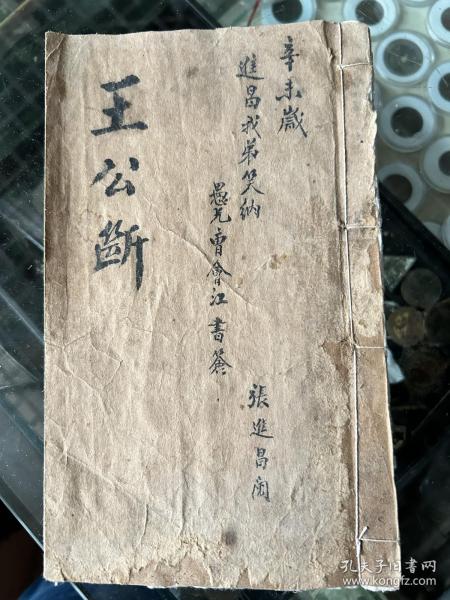 辛未歲
進昌我弟笑納
愚兄曹會江書簽
張進昌閱
王公斷
孔夫子旧书网
www.kongfz.com